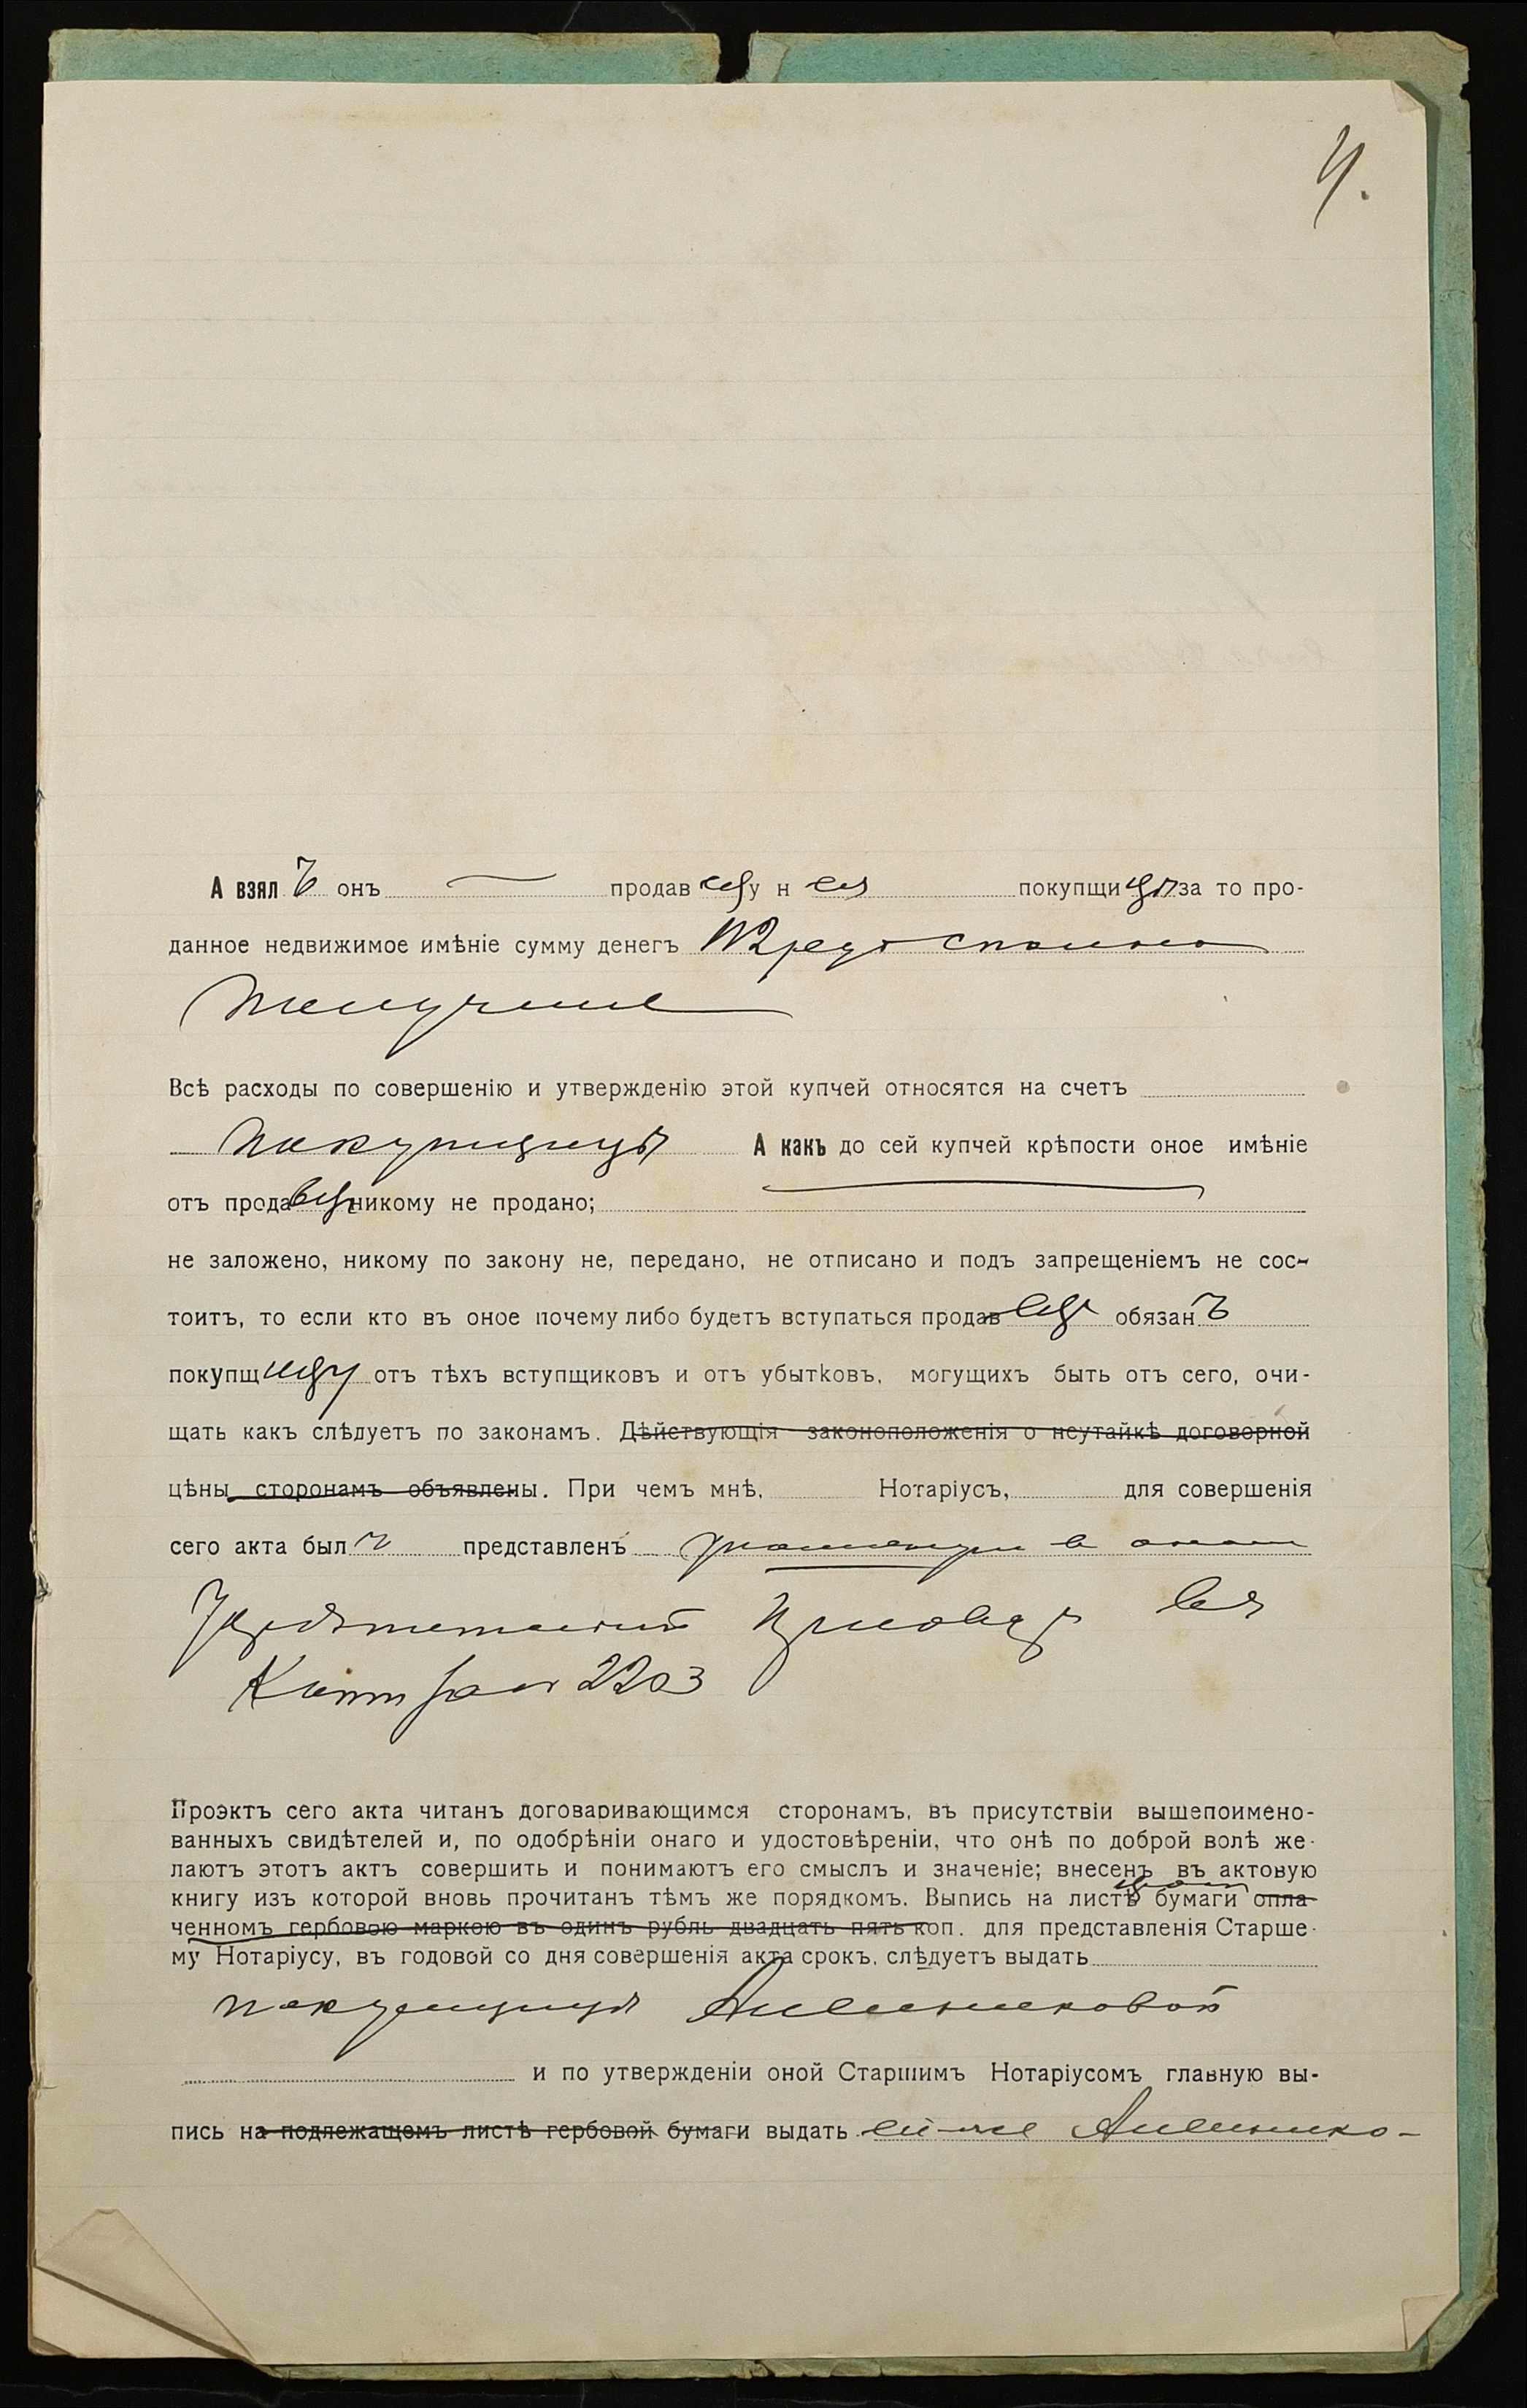 4.
А взялъ онъ продавецъ у нея покупщицы за то про-
данное недвижимое имѣніе сумму денегъ сполна
Всѣ расходы по совершенію и утвержденію этой купчей относятся на счетъ
покупщицы А какъ до сей купчей крѣпости оное имѣніе
отъ продавца никому не продано;
не заложено, никому по закону не, передано, не отписано и подъ запрещеніемъ не сос-
тоитъ, то если кто въ оное почему либо будетъ вступаться продавецъ обязанъ
покупщицу отъ тѣхъ вступщиковъ и отъ убытковъ, могущихъ быть отъ сего, очи-
щать какъ слѣдуетъ по законамъ. Дѣйствующія законоположенія о неутайкѣ договорной
цѣны сторонамъ объявлены. При чемъ мнѣ, Нотаріусъ, для совершенія
сего акта былъ представленъ
2203
Проэктъ сего акта читанъ договаривающимся сторонамъ, въ присутствіи вышепоимено-
ванныхъ свидѣтелей и, по одобрѣніи онаго и удостовѣреніи, что онѣ по доброй волѣ же-
лаютъ этотъ актъ совершить и понимаютъ его смыслъ и значеніе; внесенъ въ актовую
книгу изъ которой вновь прочитанъ тѣмъ же порядкомъ. Выпись на листѣ бумаги опла-
ченномъ гербовою маркою въ одинъ рубль двадцать пять коп. для представленія Старше-
му Нотаріусу, въ годовой со дня совершенія акта срокъ, слѣдуетъ выдать
покупщицѣ
и по утвержденіи оной Старшимъ Нотаріусомъ главную вы-
пись на подлежащемъ листѣ гербовой бумаги выдать ей-же